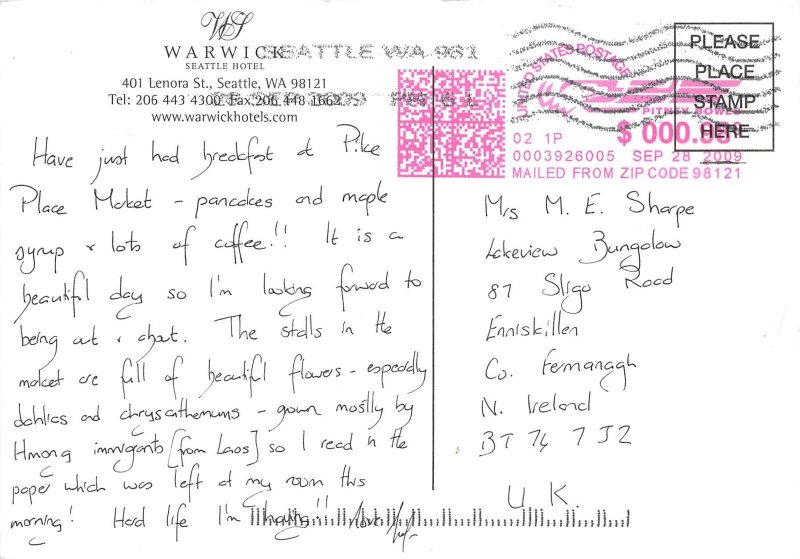 WS
WARWICK
SEATTLE HOTEL
401 Lenora St., Seattle, WA 98121
Tel: 206 443 4300 Fax 206 448 1662
www.warwickhotels.com
SEATTLE WA 981
UNITED STATES POSTAGE
PITNEY BOWES
02 1P
0003926005 SEP 28 2009
MAILED FROM ZIP CODE 98121
PLEASE
PLACE
STAMP
HERE
Have just had breakfast at Pike
Place Market - pancakes and maple
syrup & lots of coffee!! It is a
beautiful day so I'm looking forward to
being out & about. The stalls in the
market are full of beautiful flowers - especially
dahlias and chrysathemums - grown mostly by
Hmong immigrants [from Laos] so I read in the
paper which was left at my room this
morning! Hard life I'm having!! Love
Mrs M. E. Sharpe
Lakeview Bungalow
87 Sligo Road
Enniskillen
Co. Fermanagh
N. Ireland
BT74 7JZ
U.K.